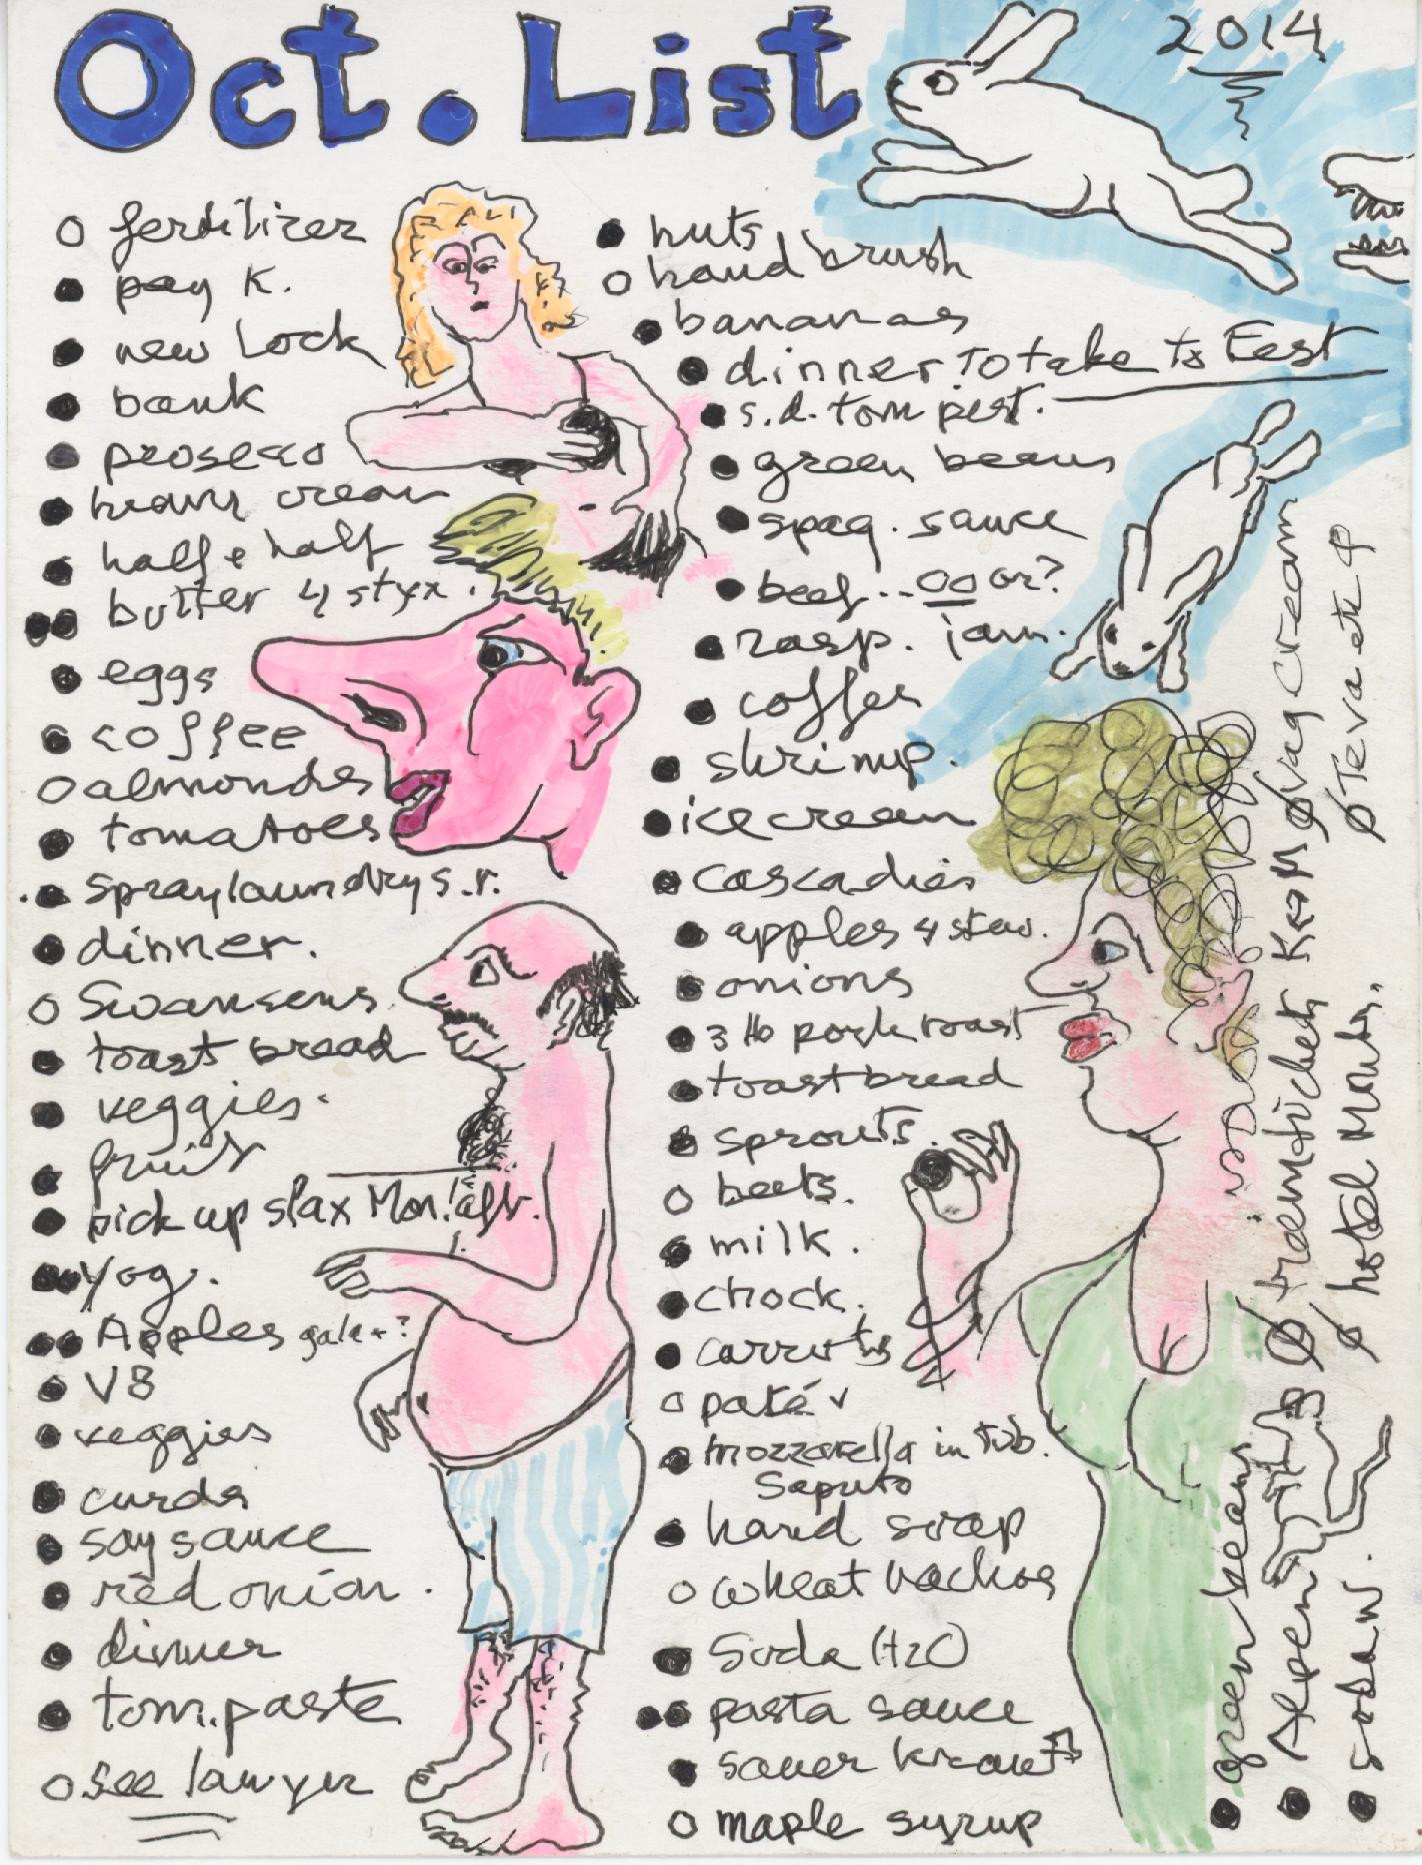 Oct. List
2014
fertilizer
pay K.
new Lock
bank
prosecco
heavy cream
half & half
butter 4 styx.
eggs
coffee
almondes
tomatoes
spray laundry s.r.
dinner.
Swansens
toast bread
veggies.
fruit
pick up slax Mon! aft.
yog.
Apples gala+?
V8
veggies
curds
soy sauce
red onion.
dinner
tom. paste
see lawyer
nuts
hand brush
bananas
dinner to take to East
s.d. tom pest.
green beans
spag. sauce
beef.. OO or?
rasp. jam.
coffee
shrimp.
ice cream
cascadies
apples 4 stew.
onions
3 lb pork roast
toast bread
sprouts.
beets.
milk.
chock.
carrots
paté
mozzarella in tub.
Saputo
hand soap
wheat
Soda H2O
pasta sauce
sauer kraut
maple syrup
green beans
Alpen
soda w.
train tickets
hotel Monts.
vag cream
Teva etc